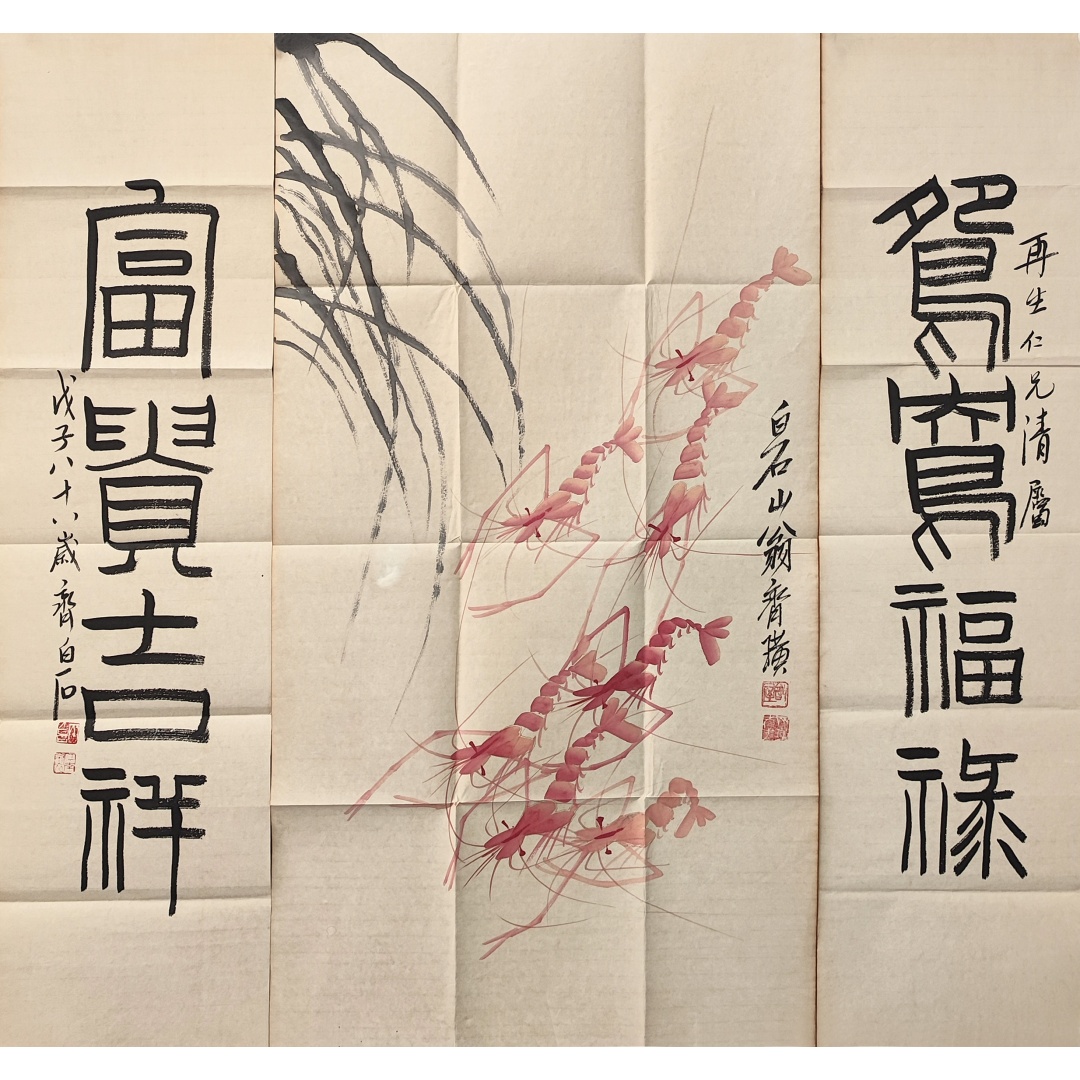 再生仁兄清屬
鴛鴦福祿
白石山翁齊璜
富貴吉祥
戊子八十八歲齊白石